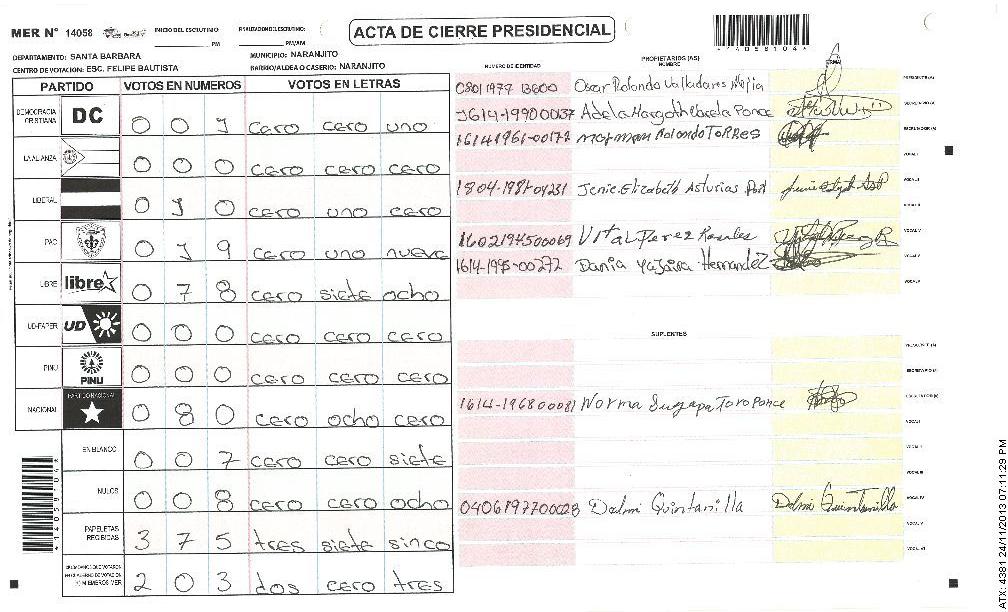 MER N° 14058
INICIO DEL ESCRUTINIO
PM
PM/AM
ACTA DE CIERRE PRESIDENCIAL
DEPARTAMENTO: SANTA BARBARA
MUNICIPIO: NARANJITO
CENTRO DE VOTACION: ESC. FELIPE BAUTISTA
BARRIO/ALDEA O CASERIO: NARANJITO
PARTIDO VOTOS EN NUMEROS VOTOS EN LETRAS
DEMOCRACIA CRISTIANA DC 0 0 1 cero cero uno
LA ALIANZA 0 0 0 cero cero cero
LIBERAL 0 1 0 cero uno cero
PAC 0 1 9 cero uno nueve
LIBRE libre 0 7 8 cero siete ocho
UD-FAPER UD 0 0 0 cero cero cero
PINU PINU 0 0 0 cero cero cero
NACIONAL PARTIDO NACIONAL 0 8 0 cero ocho cero
EN BLANCO 0 0 7 cero cero siete
NULOS 0 0 8 cero cero ocho
PAPELETAS RECIBIDAS 3 7 5 tres siete sinco
2 0 3 dos cero tres
NUMERO DE IDENTIDAD
PROPIETARIOS (AS)
NOMBRE
FIRMA
0801 1977 13600 Oscar Rolondo Valladares Mejia
PRESIDENTE (A)
1614-1990 00137 Adela Margoth Varela Ponce
SECRETARIO (A)
16141961-00172 Rolondo TORRES
ESCRUTADOR (A)
VOCAL I
1804-1981-04231 Jenie Elizabeth Asturias
1602194500069 Vital Perez Rosales
1614-1995-00272 Dania Yajaira Hernandez
SUPLENTES
1614-196800081 Norma Suyapa Toro Ponce
0406197700028 Delmi Quintanilla Delmi Quintanilla
ATX: 4381 24/11/2013 07:11:29 PM